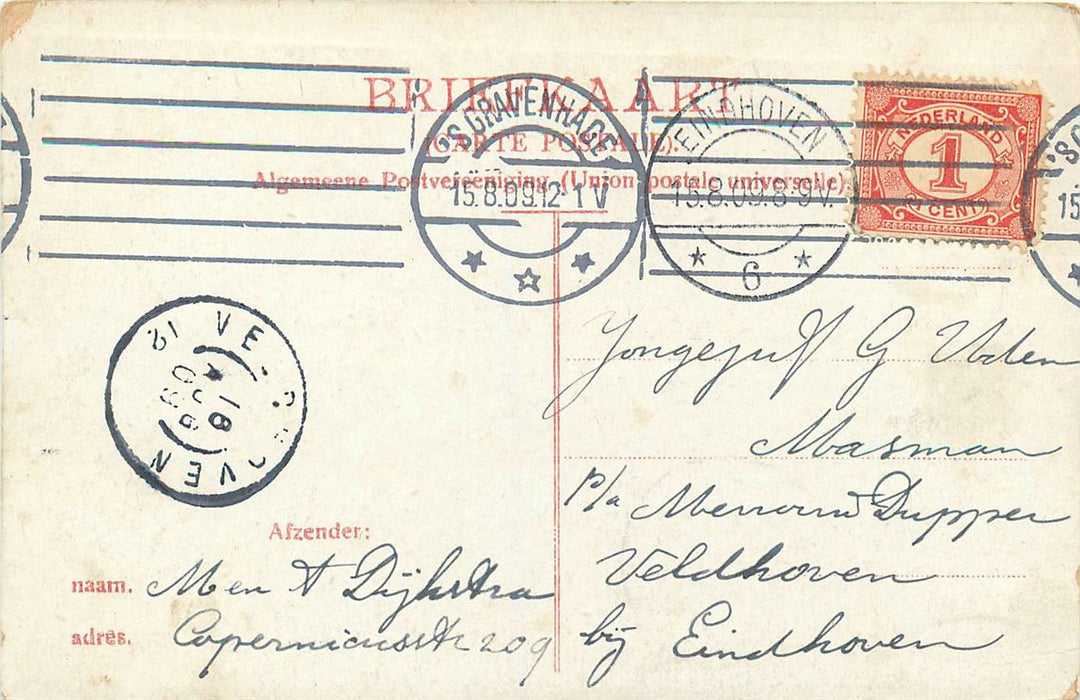 BRIEFKAART
(CARTE POSTALE).
Algemeene Postvereeniging (Union postale universelle).
'S GRAVENHAGE
15.8.09.12-1V
EINDHOVEN
15.8.09.8-9V.
6
NEDERLAND
1
(1 CENT)
'SG
15
VELDHOVEN
12
18
AUG
09
Jongejuf G Uden
Masman
p/a Mevrouw Dupper
Veldhoven
bij Eindhoven
Afzender:
naam. Men A Dijkstra
adres. Copernicusstr 209